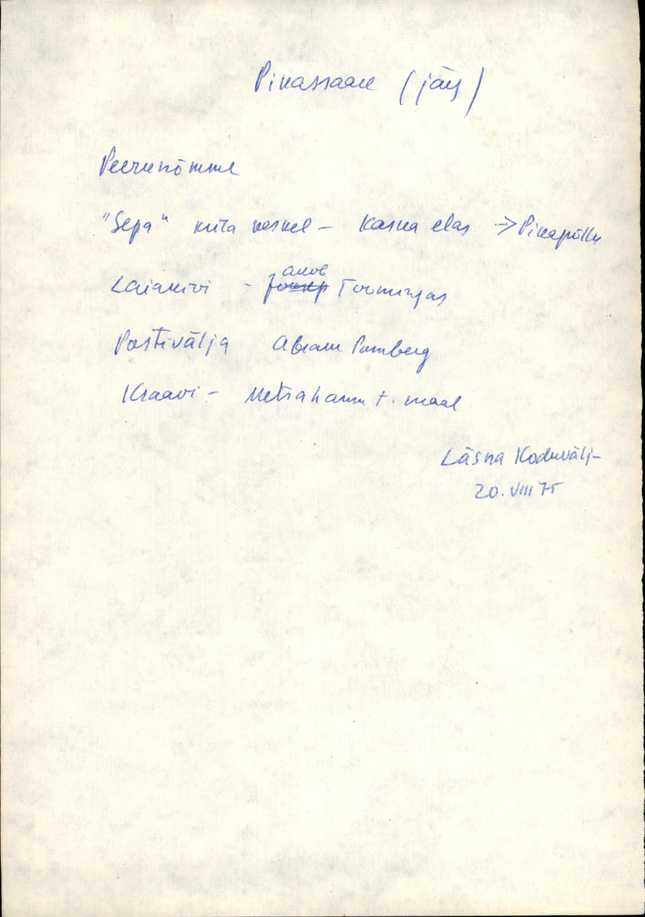 Pikassaare (järg)
Peerunõmme
"Sepa" küla keskel – Kasna elas → Pikapõllu
Laiakivi - Jaak Toomingas
Postivälja Abram Pamberg
Kraavi – Metsahannu t. maal
Läsna Koduvälj–
20. VIII 75